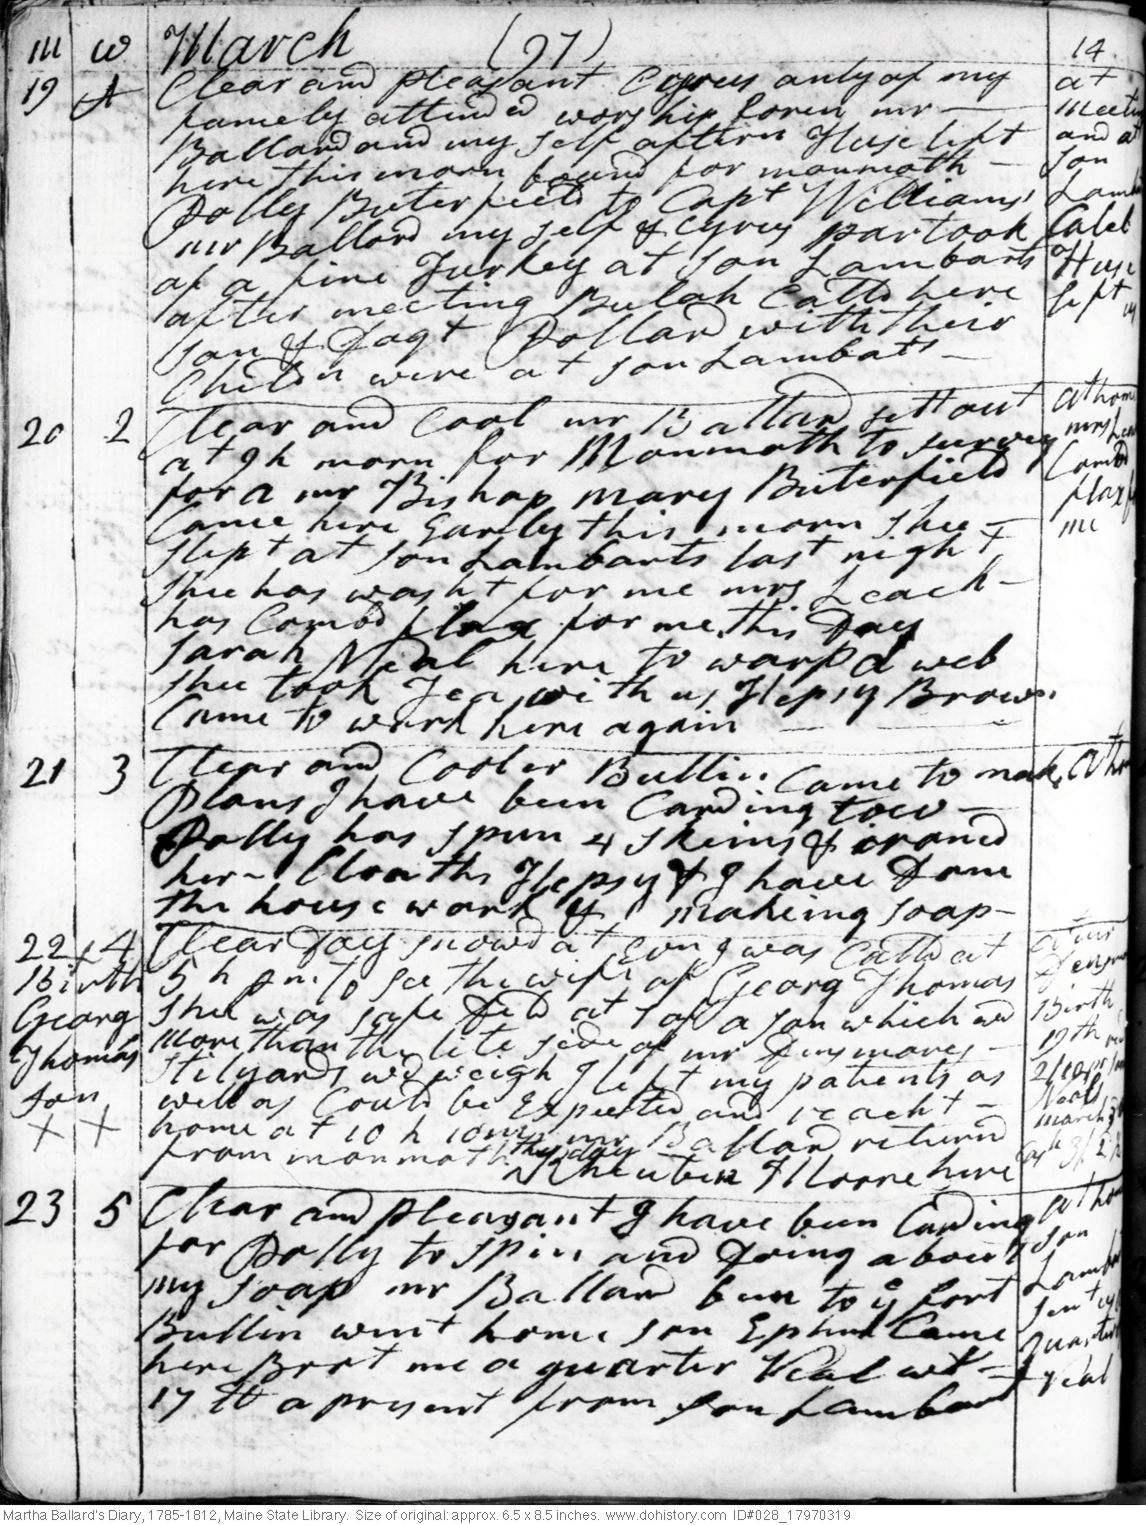 m w March (97) 14
19 A Clear and pleasant Cyrus only of my at
famely attinded worship foren mr — meeti
Ballard and my self aftern Huse left and a
here this morn bound for monmoth — son
Polly Buterfield to Capt Williams' Lamb
mr Ballard my self & Cyrus partook Caleb
of a fine Turkey at son Lambarts Huse
after meeting Bulah Calld here left
son & Dagt Pollard with their
Childn were at son Lambats —
20 2 Clear and Cool mr Ballard sett out at home
at 9 h morn for Monmoth to survey mrs Lea
for a mr Bishop mary Buterfield Combd
Came here Earely this morn shee — flax f
slept at son Lambarts last night me
shee has washt for me mrs Leach —
has Combd flax for me this Day
Sarah Neal here to warp a web
shee took Tea with us Hepsy Brown
Came to work here again — —
21 3 Clear and Cooler Bullin Came to make at hom
Plans I have been Carding tow —
Polly has spun 4 skeins & ironed
her Cloaths Hepsy & I have Done
the house work & making soap —
22 x 4 Clear Day snowd at Evng I was Calld at at mr
Birth 5 h pm to see the wife of Georg Thomas Densmor
Georg shee was safe Deld at 7 of a son which wd Birth
Thomas more than the lite side of mr Densmores — 19th
son stilyards wd weigh I left my patients as 2/
x x well as Could be Expected and reacht — march
home at 10 h 10 mr Ballard returnd
from monmoth this day Rheuben Moore here
23 5 Clear and pleasant I have been Carding at hom
for Polly to spin and Doing about son
my soap mr Ballard been to ye fort Lamba
Bullin went home son Ephm Came sent
here Brot me a quarter Veal wt — quarter
17 lb a present from son Lambard veal
Martha Ballard's Diary, 1785-1812, Maine State Library. Size of original: approx. 6.5 x 8.5 inches. www.dohistory.com ID#028_17970319